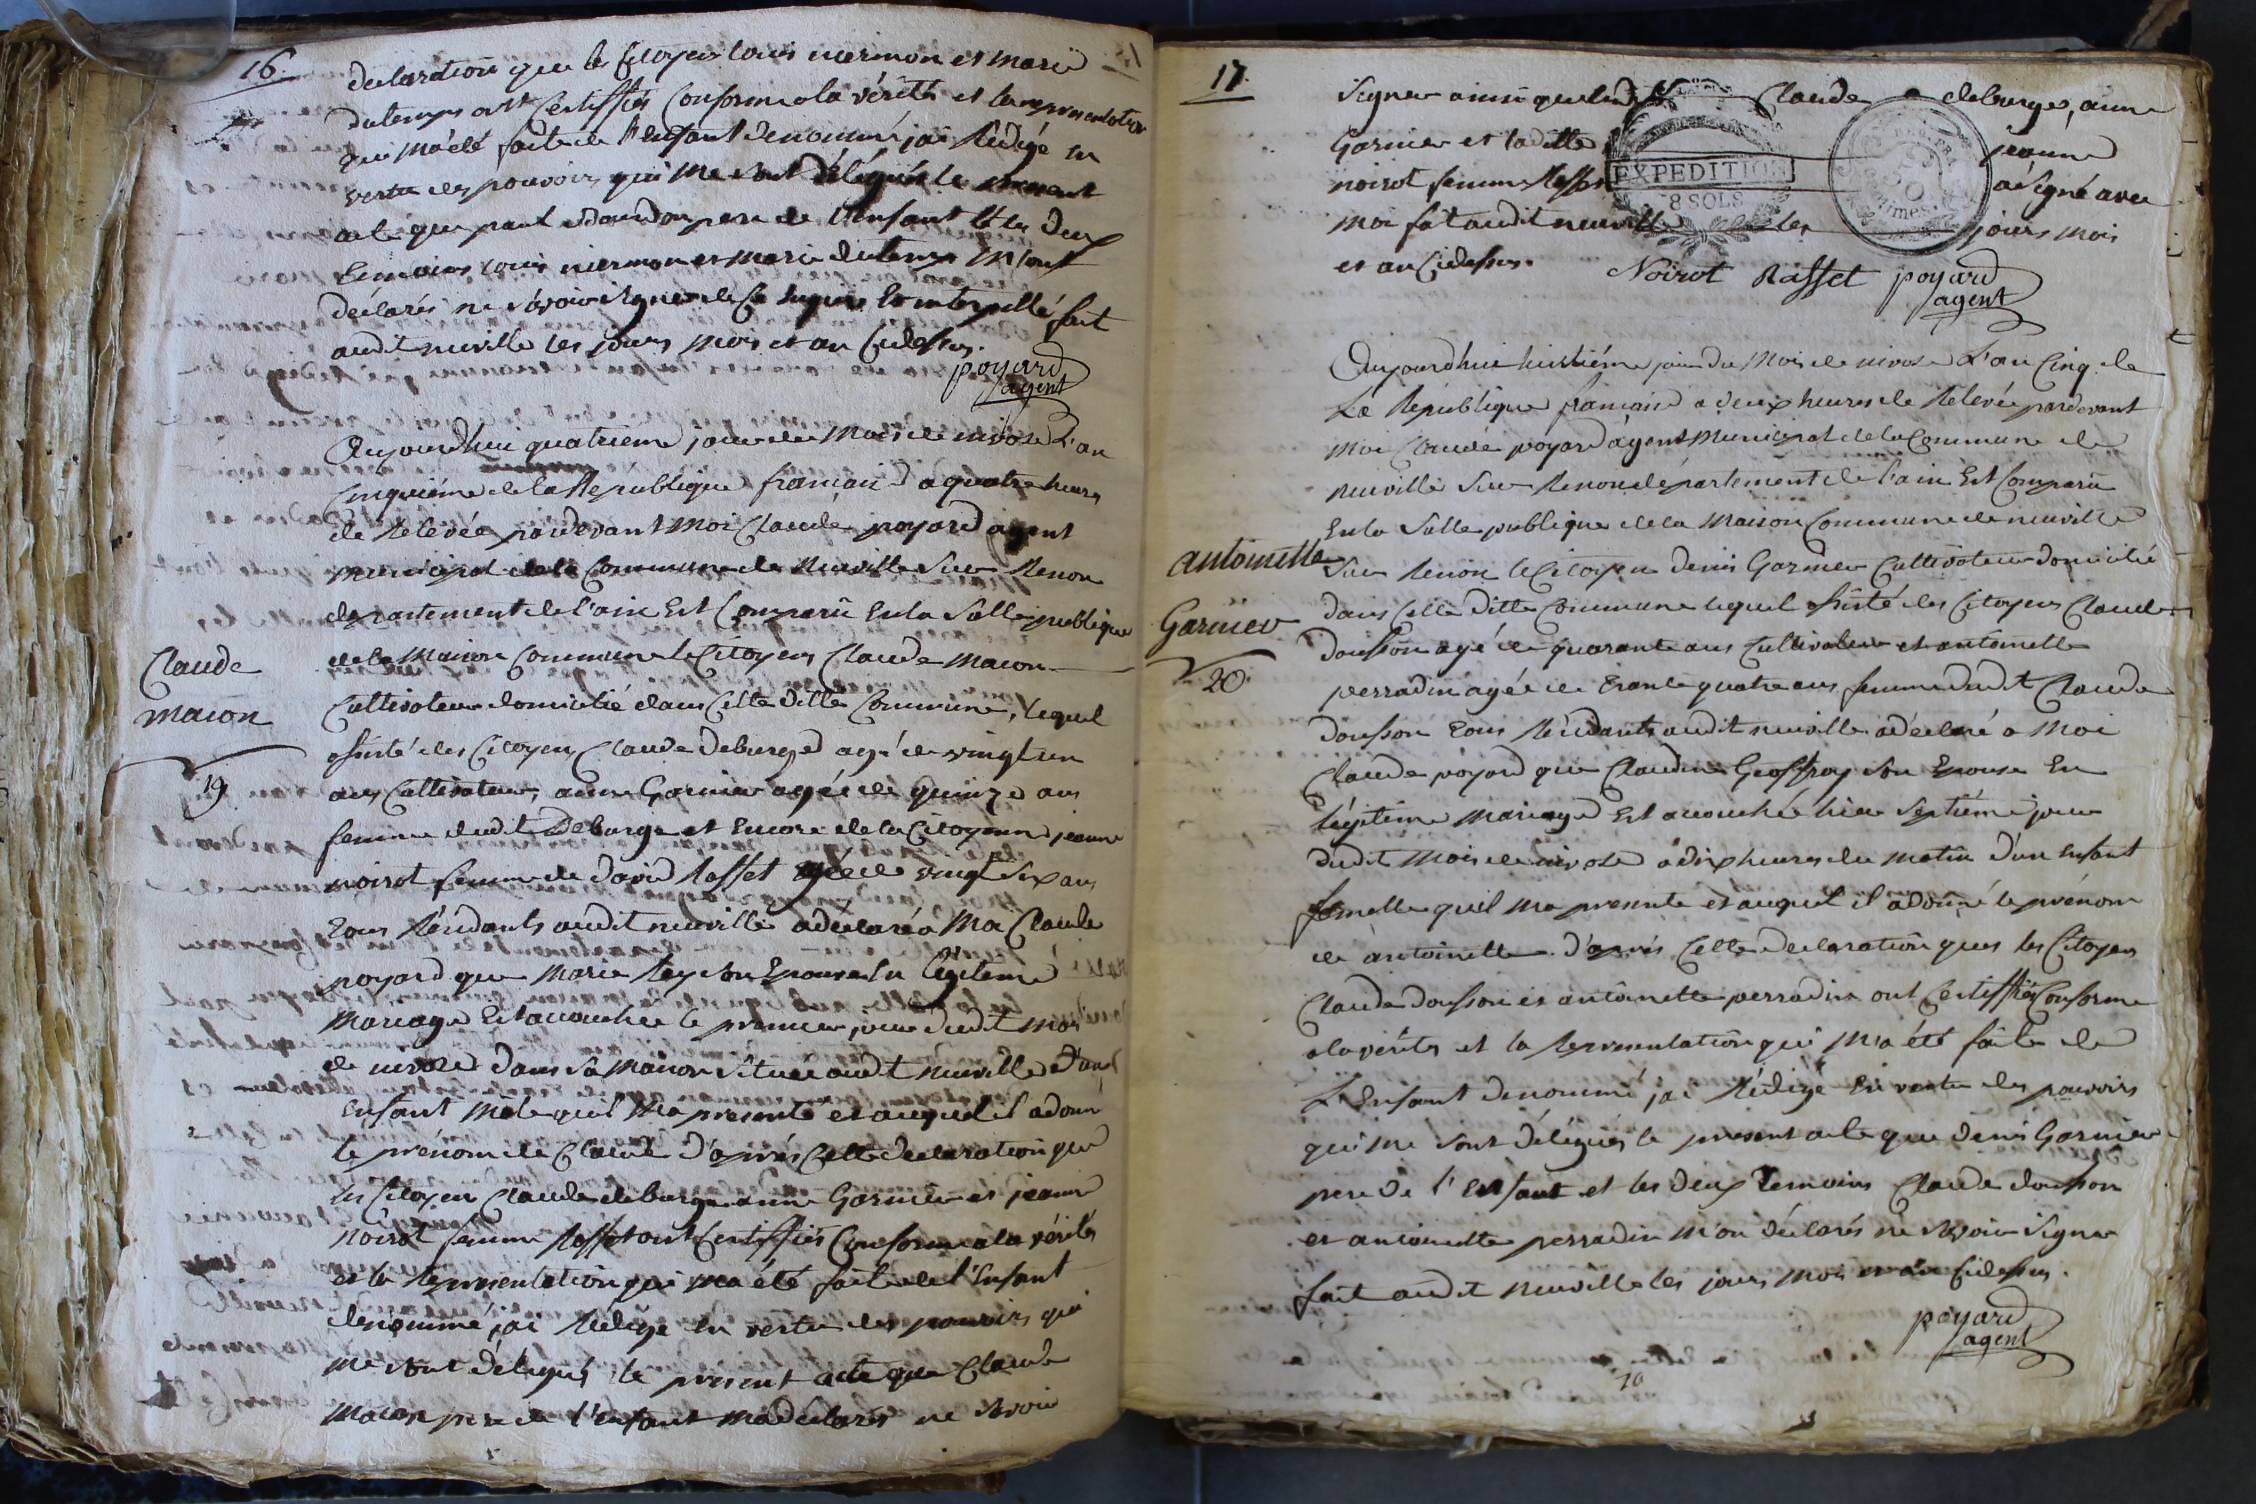 16
declaration que le Citoyen louis mermon et marie
dutemps ont Certiffiés Conforme a la vérité et la representation
qui ma été faite de l'enfant denommé jai Rédigé en
vertu des pouvoirs qui me sont délégués le present
acte que pere de l'enfant et les deux
temoins louis mermon et marie dutemps m'ont
déclarés ne sávoir signer de Ce Enquis Et interpellé fait
audit neuville les jours mois et an Cidessus.
poyard
agent
Aujourdhui quatrieme jour du Mois de nivose L'an
Cinquiéme de la Republique francaise a quatre heures
de Relevée pardevant Moi Claude poyard agent
municipal de la Commune de Neuville Sur Renon
departement de l'ain Est Comparu En la Salle publique
de la Maison Commune le Citoyen Claude Macon
Claude
macon
19
Cultivateur domicilié dans Cette ditte Commune, lequel
assisté des Citoyens Claude Deburge agé de vingt un
ans Cultivateur, anne Garnier agée de quinze ans
femme dudit Deburge et Encore de la Citoyenne jeanne
noirot femme de david Rasset agée de vingt Six ans
tous Résidants audit neuville a déclaré a Moi Claude
poyard que Marie Rey son Epouse En légitime
Mariage Est accouchée le premier jour dudit mois
de nivose dans sa maison située audit neuville d'un
Enfant Mâle quil ma presenté et auquel il a donné
le prénom de Claude d'après Cette declaration que
les Citoyens Claude deburge anne Garnier et jeanne
Noirot femme Rasset ont Certiffiés Conforme a la vérité
et la Representation qui ma été faite de l'Enfant
denommé, jai Rédigé En vertu des pouvoirs qui
me sont délégués le present acte que Claude
Macon pere de l'enfant ma déclarés ne Savoir
17
Signer ainsi que Claude deburge, anne
Garnier et la ditte jeanne
noirot femme Rasset a signé avec
moi fait audit neuville les jours mois
et an Cidessus.
EXPEDITION
8 SOLS
50
Centimes
Noirot Rasset poyard
agent
Aujourdhui huitiéme jour du Mois de nivose L'an Cinq de
La République francaise a deux heures de Relevée pardevant
moi Claude poyard agent Municipal de la Commune de
neuville Sur Renon département de l'ain Est Comparu
En la Salle publique de la Maison Commune de neuville
antoinette
Garnier
20
Sur Renon le Citoyen denis Garnier Cultivateur domicilié
dans Cette ditte Commune lequel assisté des Citoyens Claude
dousson agé de quarante ans Cultivateur et antoinette
perradin agée de trante quatre ans femme dudit Claude
dousson tous Résidants audit neuville a déclaré a Moi
Claude poyard que Claudine Geoffroy son Epouse En
légitime Mariage Est accouchée hier Septiéme jour
dudit Mois de nivose a dix heures du matin d'un Enfant
femelle quil ma presenté et auquel il a donné le prénom
de antoinette d'après Cette declaration que les Citoyens
Claude dousson et antoinette perradin ont Certiffiés Conforme
a la vérité et la Representation qui m'a été faite de
L'Enfant denommé, jai Rédigé En vertu des pouvoirs
qui me sont délégués le present acte que denis Garnier
pere de l'Enfant et les deux temoins Claude dousson
et antoinette perradin m'on déclarés ne sávoir signer
fait audit neuville les jours mois et an Cidessus.
poyard
agent